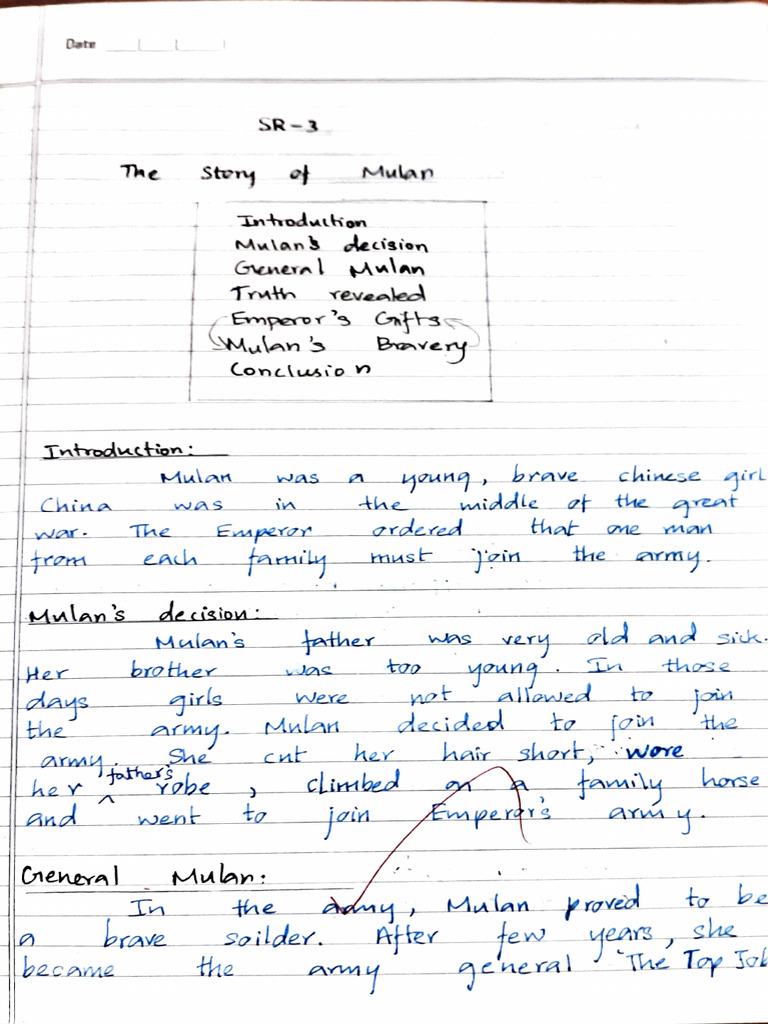 Date
SR-3
The Story of Mulan
Introduction
Mulan's decision
General Mulan
Truth revealed
Emperor's Gifts
Mulan's Bravery
Conclusion
Introduction:
Mulan was a young, brave chinese girl
China was in the middle of the great
war. The Emperor ordered that one man
from each family must join the army.
Mulan's decision:
Mulan's father was very old and sick.
Her brother was too young. In those
days girls were not allowed to join
the army. Mulan decided to join the
army. She cut her hair short, wore
her father's robe, climbed on a family horse
and went to join Emperor's army.
General Mulan:
In the army, Mulan proved to be
a brave soilder. After few years, she
became the army general "The Top Job